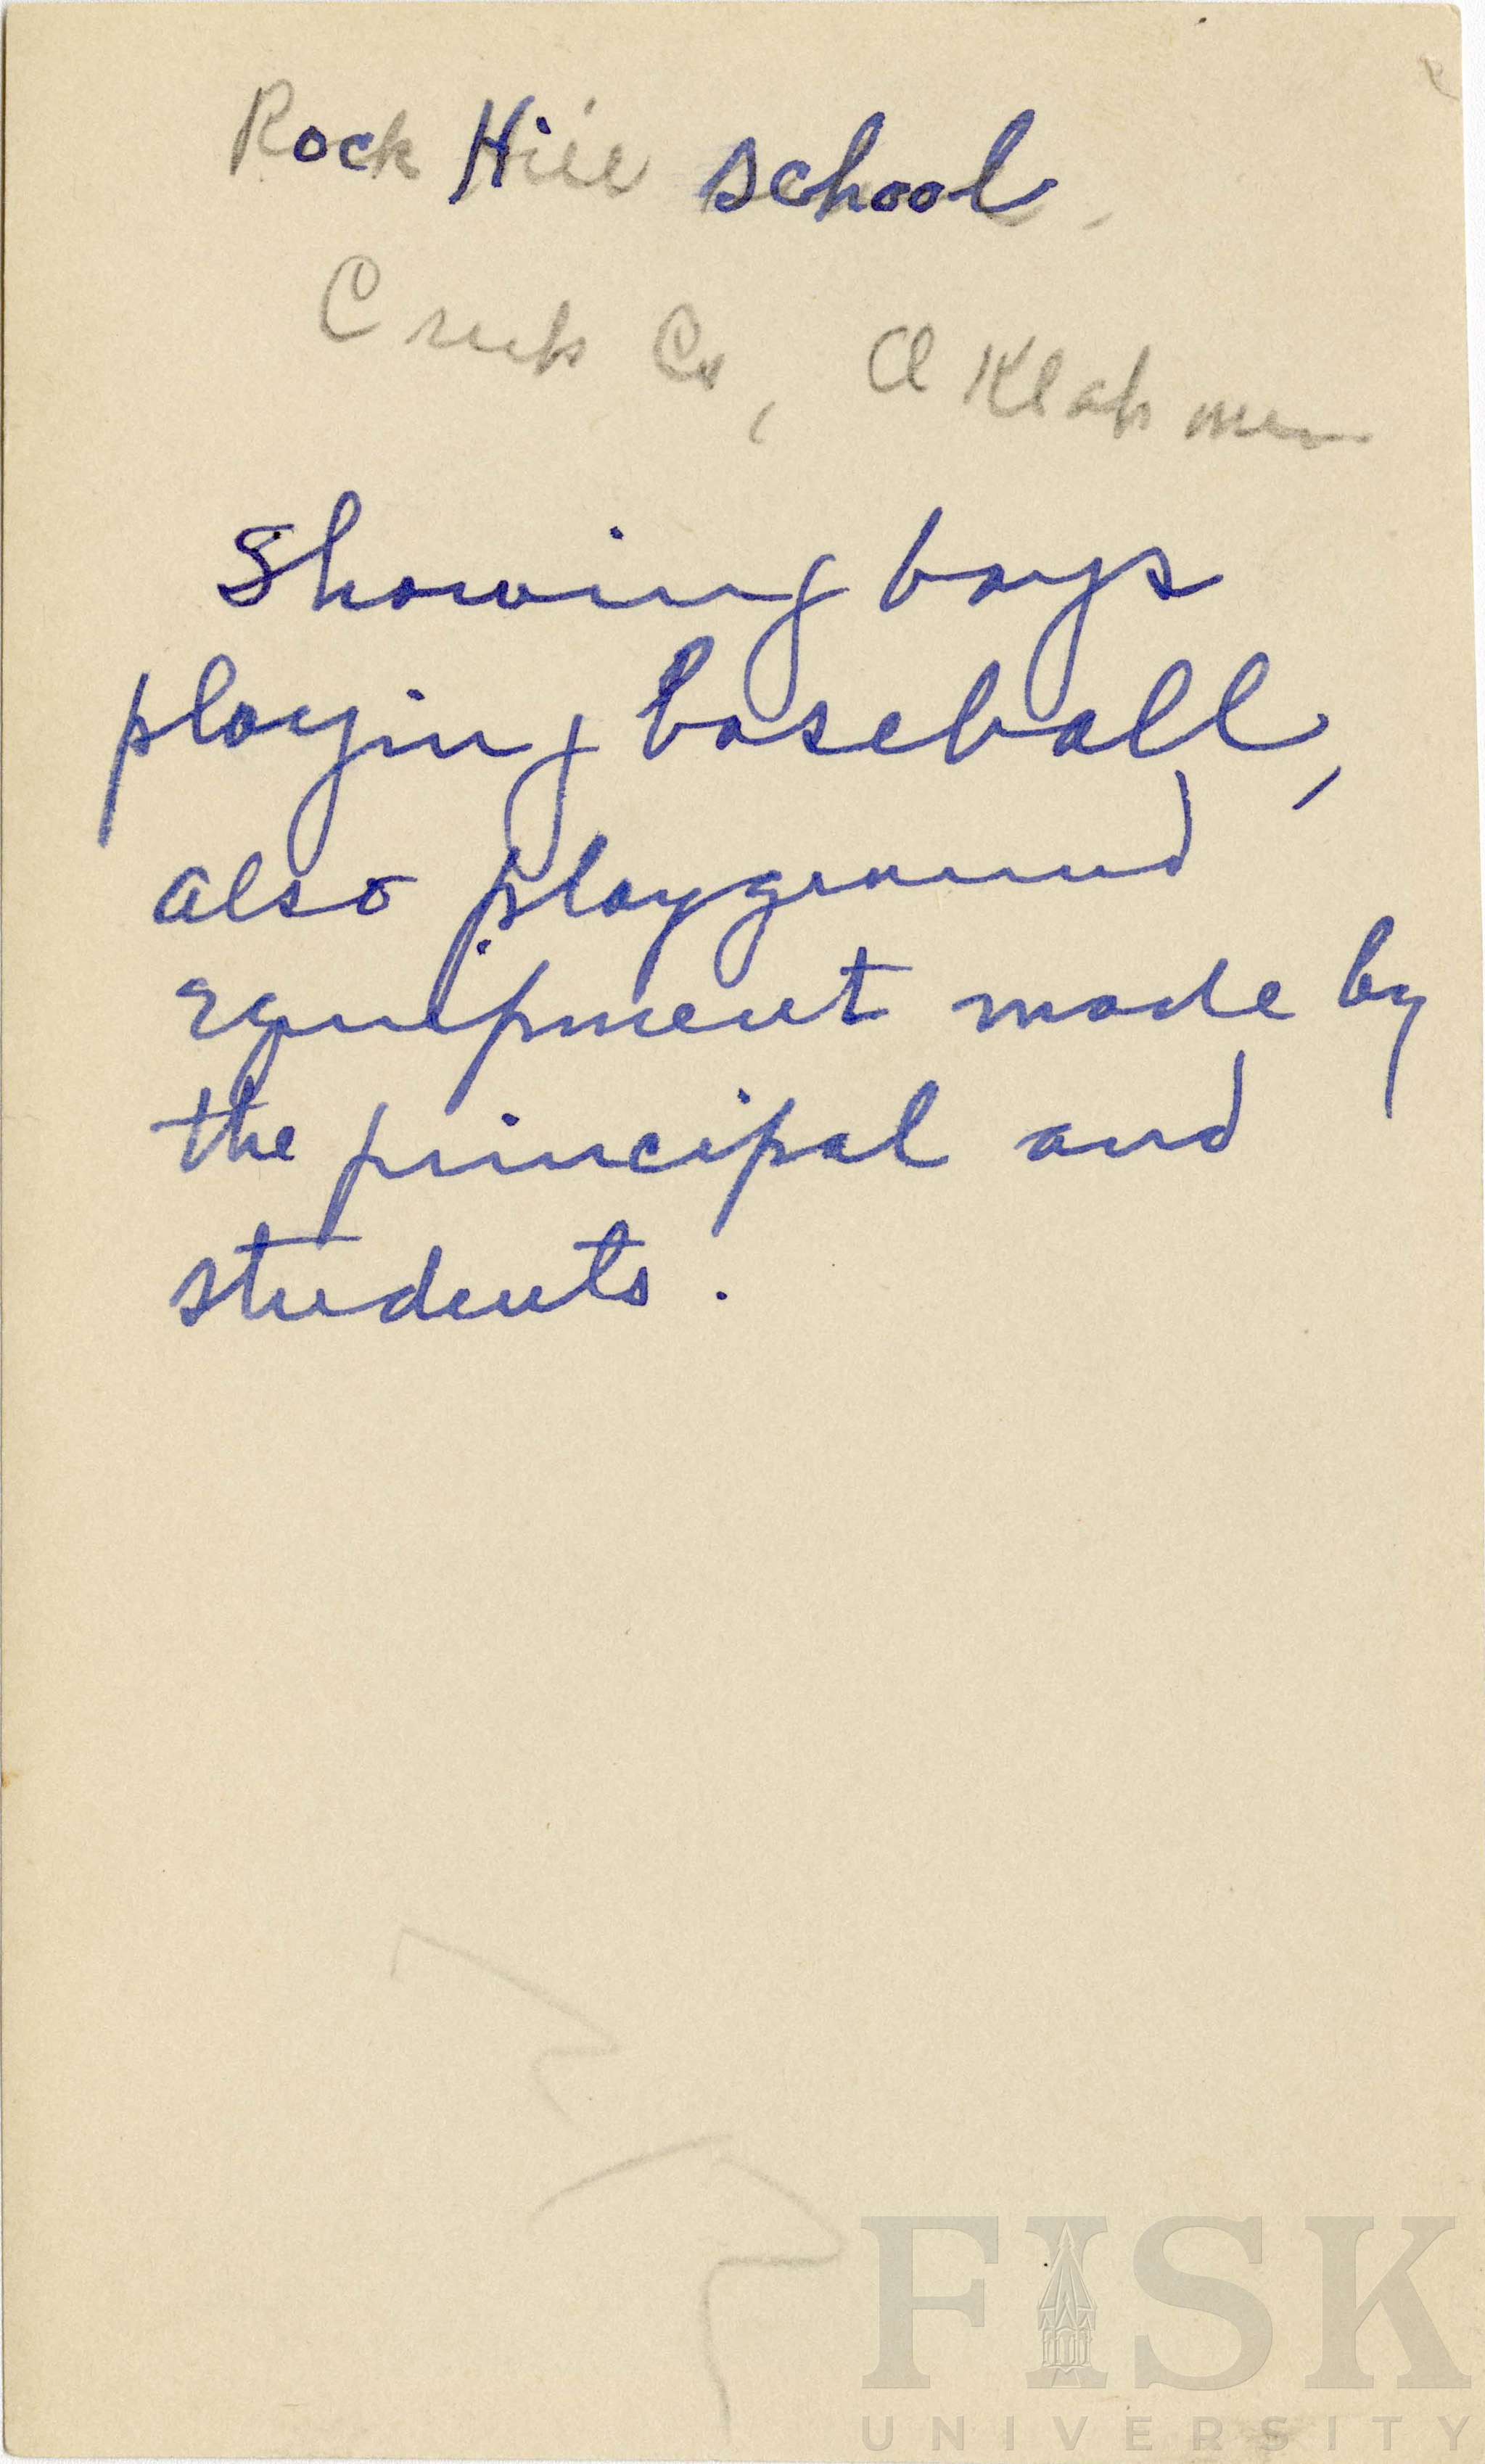 Rock Hill school
Creek Co, Oklahoma
Showing boys
playing baseball,
also playground
equipment made by
the principal and
students.
FISK
UNIVERSITY